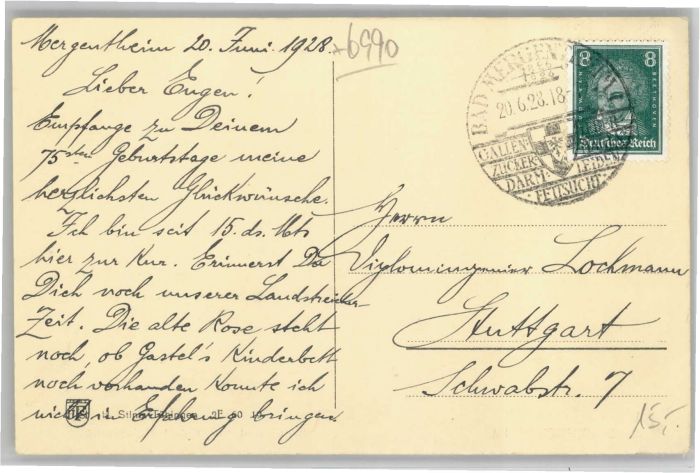 Mergentheim 20. Juni 1928.
Lieber Eugen!
Empfange zu Deinem
75sten Geburtstage meine
herzlichsten Glückwünsche.
Ich bin seit 15. ds. Mts
hier zur Kur. Erinnerst Du
Dich noch unserer Landstreicher
Zeit. Die alte Rose steht
noch, ob Gastel's Kinderbett
noch vorhanden konnte ich
nicht in Erfahrung bringen
6990
BAD MERGENTHEIM
20.6.28.18-
GALLEN-
ZUCKER-
DARM-
LEIDEN
FETTSUCHT
8 8
BEETHOVEN
Deutsches Reich
Herrn
Diplomingenier Lochmann
Stuttgart
Schwabstr. 7
15,-